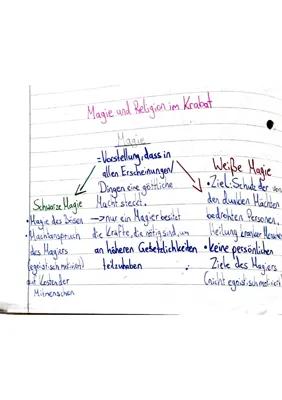 Magie und Religion im Krabat
Magie
= Vorstellung, dass in
allen Erscheinungen/
Dingen eine göttliche
Macht steckt.
→ nur ein Magier besitzt
die Kräfte, die nötig sind, um
an höheren Gesetzlichkeiten
teilzuhaben
Schwarze Magie
• Magie des Bösen
• Machtanspruch
des Magiers
(egoistisch motiviert)
auf Kosten der
Mitmenschen
Weiße Magie
• Ziel: Schutz der von
den dunklen Mächten
bedrohten Personen,
Heilung kranker Menschen
• keine persönlichen
Ziele des Magiers
(nicht egoistisch motiviert)